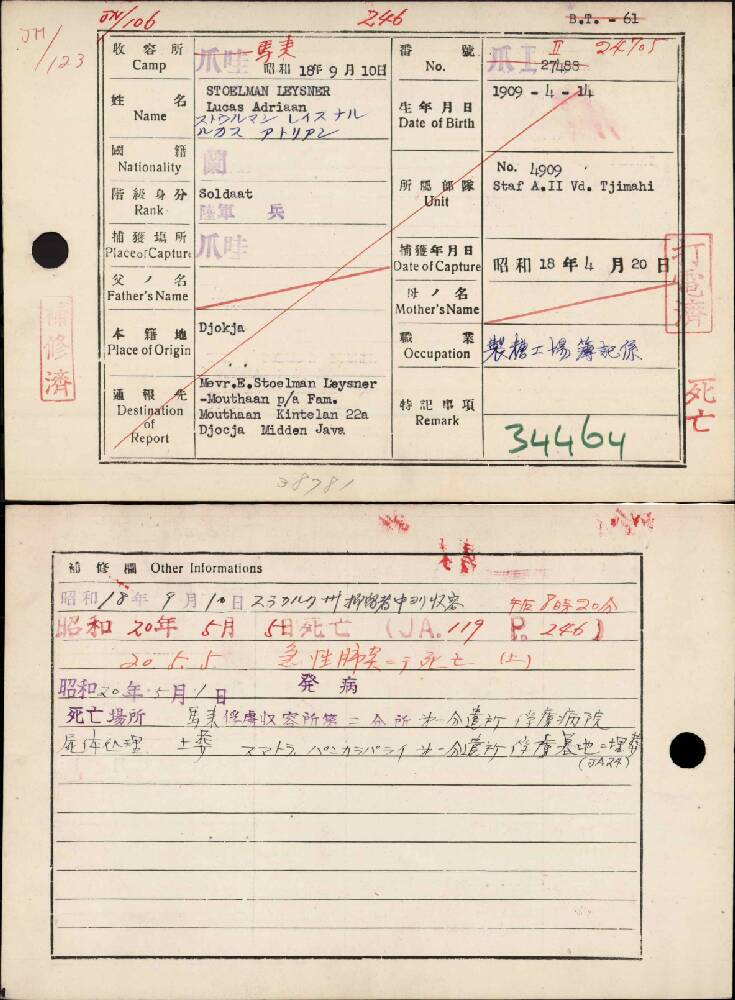 JN/106
246
B.T. - 61
JM/123
收容所
Camp
爪哇
馬来
昭和 18年 9月 10日
番號
No.
爪 II
27488
24705
姓名
Name
STOELMAN LEYSNER
Lucas Adriaan
ストウルマン レイスナル
ルカス アトリアン
生年月日
Date of Birth
1909 - 4 - 14
國籍
Nationality
蘭
階級身分
Rank
Soldaat
陸軍 兵
所屬部隊
Unit
No. 4909
Staf A.II Vd. Tjimahi
捕獲場所
Place of Capture
爪哇
捕獲年月日
Date of Capture
昭和 18年 4月 20日
父ノ名
Father's Name
母ノ名
Mother's Name
本籍地
Place of Origin
Djokja
職業
Occupation
製糖工場簿記係
通報先
Destination
of
Report
Mevr.E.Stoelman Leysner
-Mouthaan p/a Fam.
Mouthaan Kintelan 22a
Djocja Midden Java
特記事項
Remark
34464
補修濟
打電濟
死亡
38781
補修欄 Other Informations
昭和18年9月10日 スラカルタ州 抑留者中ヨリ収容
午后8時20分
昭和 20年 5月 5日死亡 (JA.119 P. 246)
20.5.5 急性肺炎ニテ死亡
昭和20年5月1日 発病
死亡場所 馬来俘虜収容所第二分所第一分遣所俘虜病院
屍体処理 土葬 スマトラ パンカランバライ第一分遣所俘虜墓地ニ埋葬
(JA24)